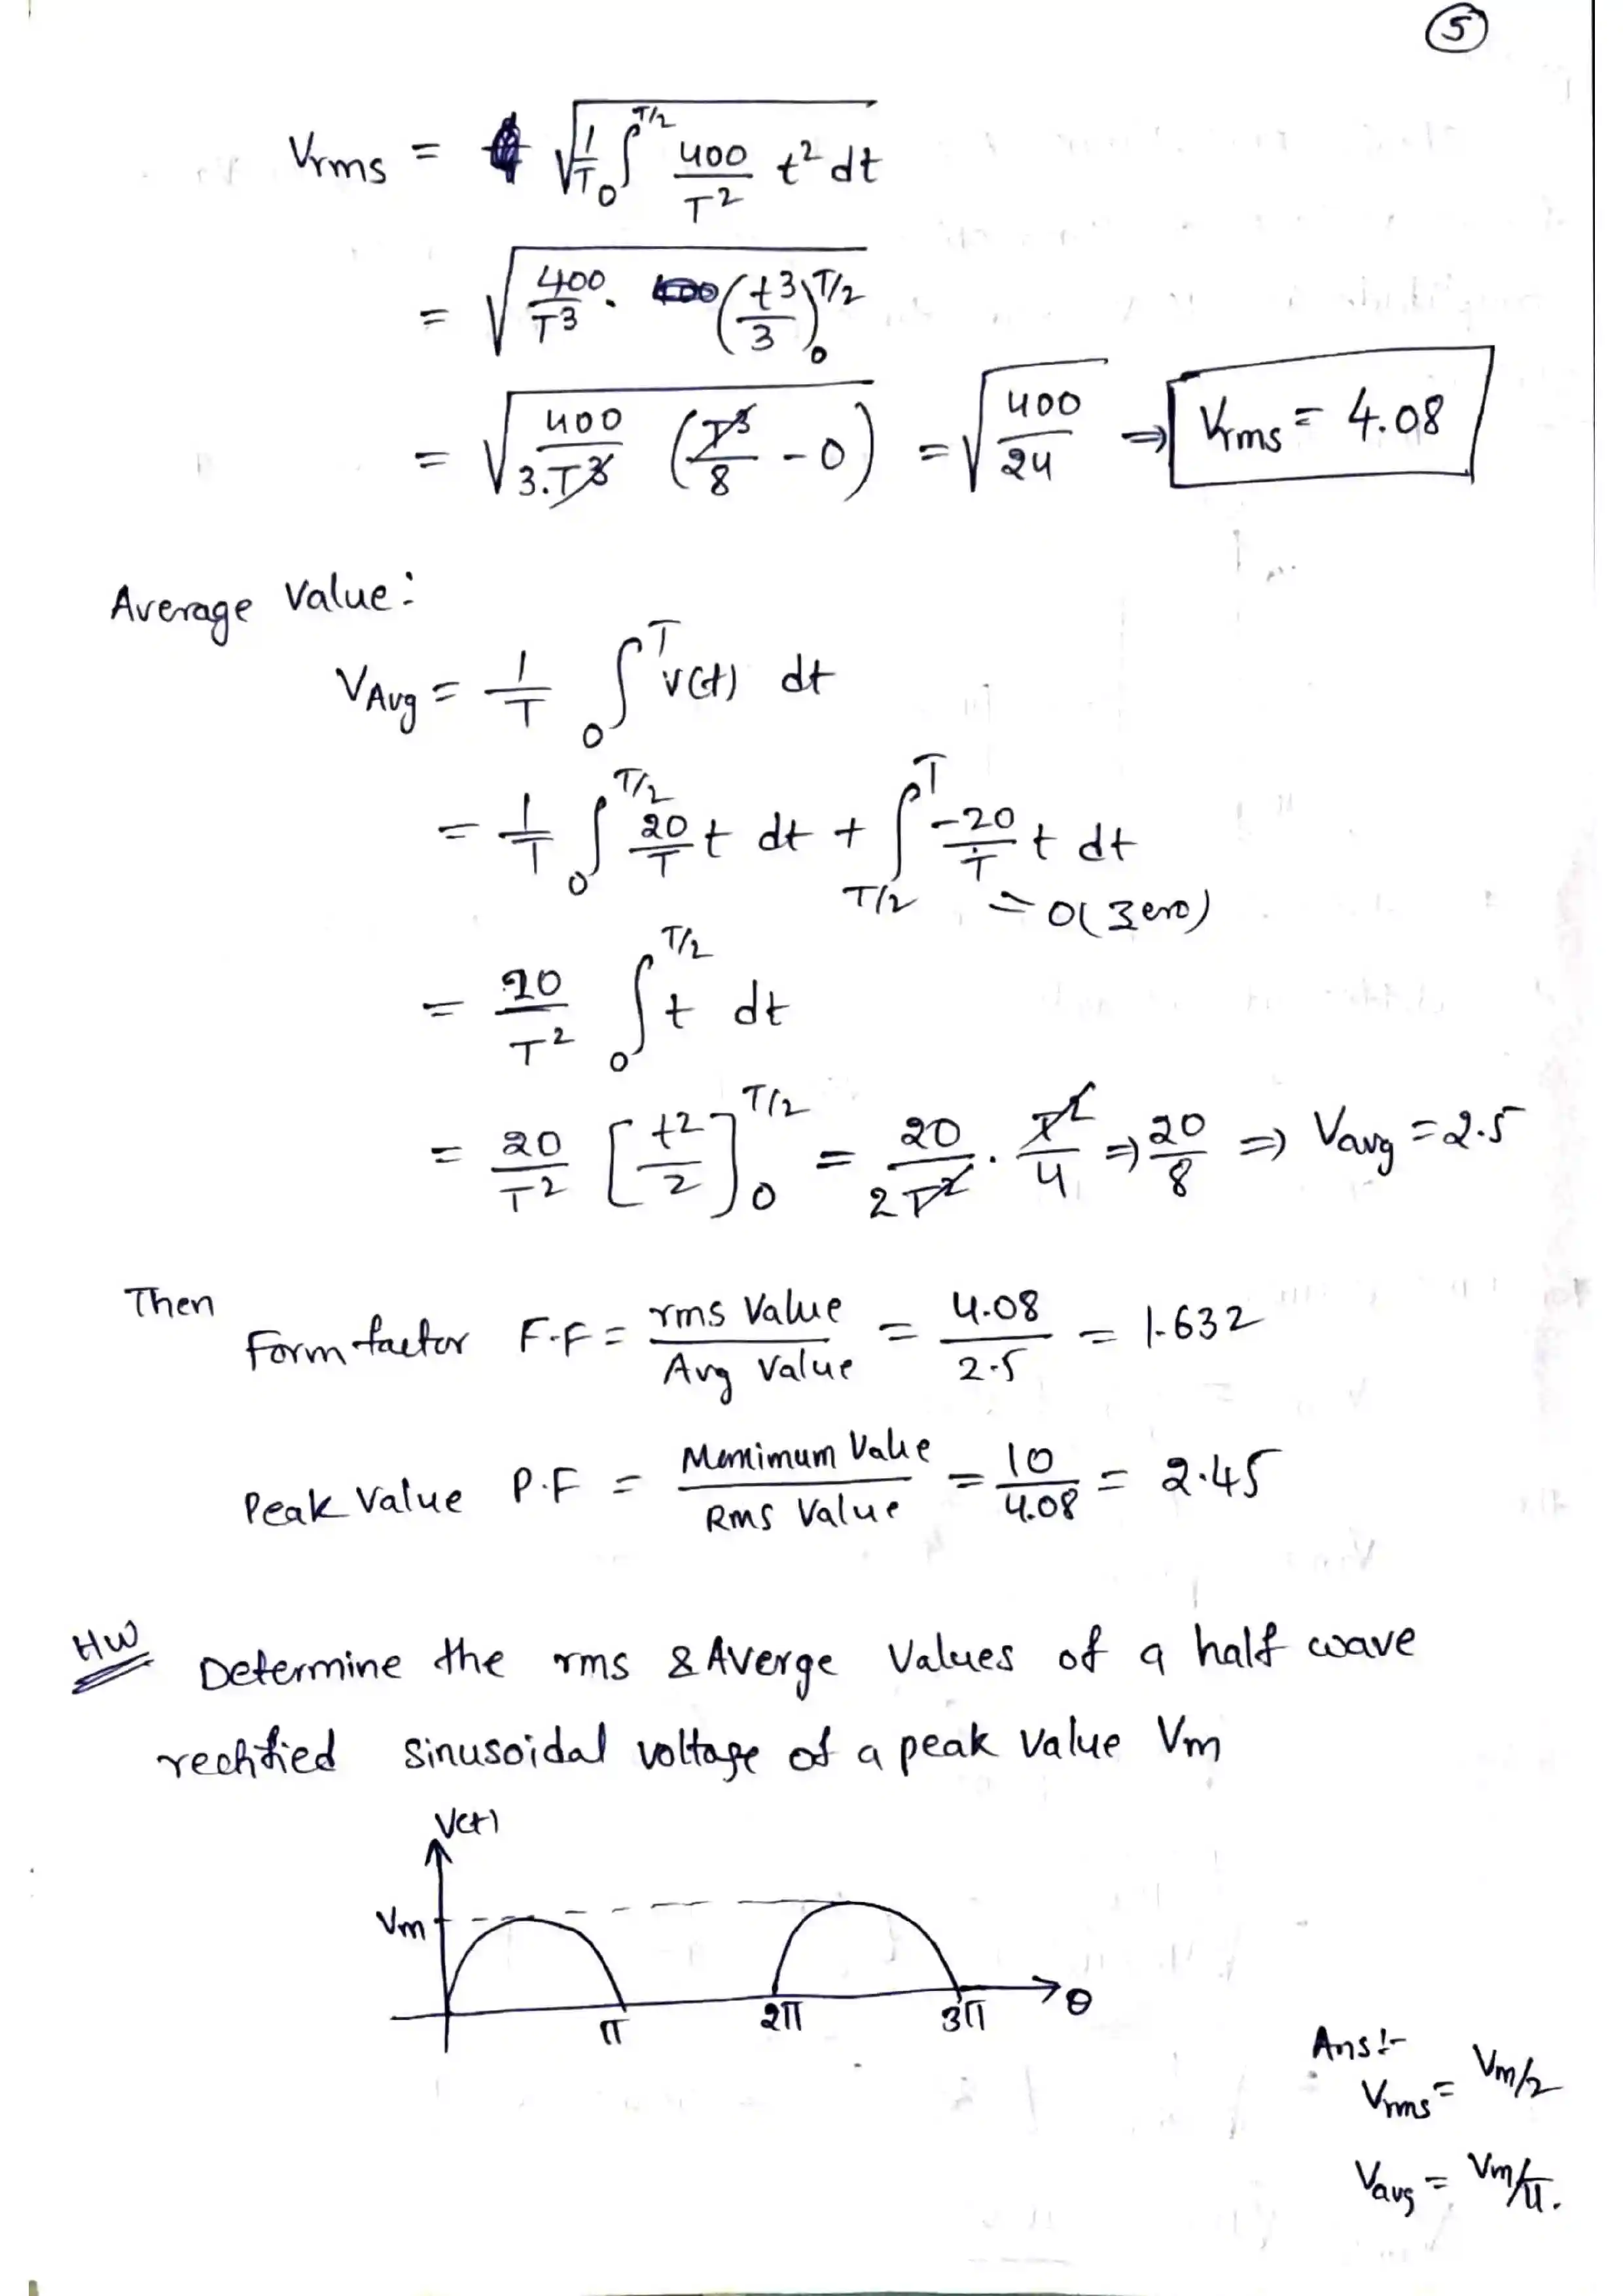 5
Vrms = √(1/T ∫₀^T/2 400/T² t² dt)
= √(400/T³ · (t³/3)₀^T/2)
= √(400/3.T³ (T³/8 - 0)) = √(400/24) ⇒ Vrms = 4.08
Average Value:
VAvg = 1/T ∫₀^T v(t) dt
= 1/T ∫₀^T/2 20/T t dt + ∫_T/2^T -20/T t dt
= 0(Zero)
= 20/T² ∫₀^T/2 t dt
= 20/T² [t²/2]₀^T/2 = 20/2T² · T²/4 ⇒ 20/8 ⇒ Vavg = 2.5
Then
Form factor F.F = rms Value/Avg Value = 4.08/2.5 = 1.632
Peak Value P.F = Maximum Value/Rms Value = 10/4.08 = 2.45
HW Determine the rms & Averge Values of a half wave
rectified sinusoidal voltage of a peak value Vm
V(t)
Vm
π 2π 3π θ
Ans:-
Vrms = Vm/2
Vavg = Vm/π.